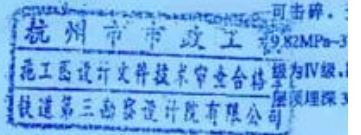 可击碎．
杭州市市政工
9.82MPa~3
施工图设计文件技术审查合格
级为Ⅳ级．
铁道第三勘察设计院有限公司
层顶埋深3